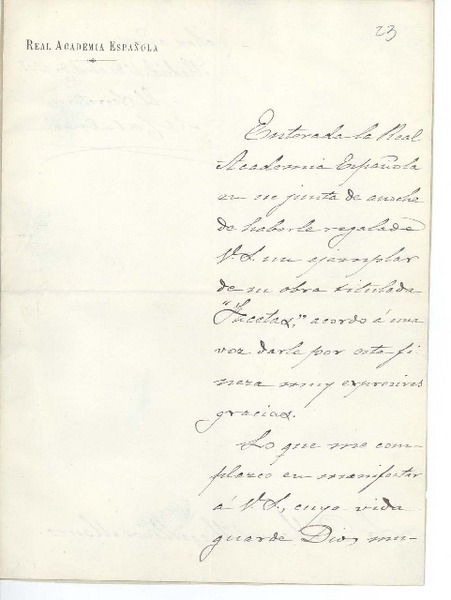 23
REAL ACADEMIA ESPAÑOLA
Enterada la Real
Academia Española
en su junta de anoche
de haberle regalado
V.S. un ejemplar
de su obra titulada
"Facetas," acordó á una
voz darle por esta fi-
neza muy expresivas
gracias.
Lo que me com-
plazco en manifestar
á V.S., cuya vida
guarde Dios mu-